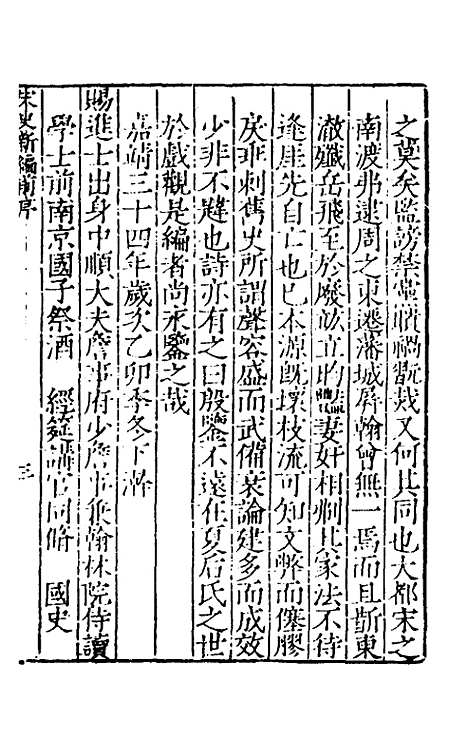 之冀矣濫謗禁黨瀆禍戬烖又何其同也大都宋之
南渡弗逮周之東遷藩城屏翰曾無一焉而且斮東
澈殲岳飛至於廢竑立昀豔妻奸相煽其家法不待
逢厓先自亡也已本源既壞枝流可知文弊而僿膠
戾乖剌舊史所謂聲容盛而武備衰論建多而成效
少非不韙也詩亦有之曰殷鑒不遠在夏后氏之世
於戲觀是編者尚永鑒之哉
嘉靖三十四年歲次乙卯季冬下澣
賜進士出身中順大夫詹事府少詹事兼翰林院侍讀
學士前南京國子祭酒 經筵講官同脩 國史
宋史新編前序
三